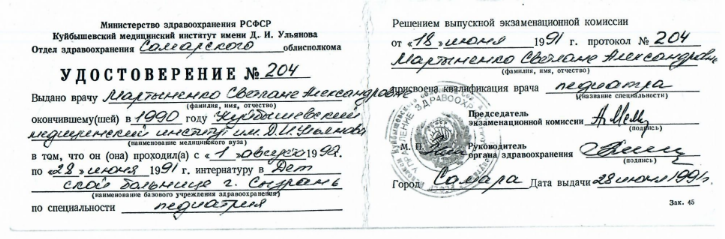 Министерство здравоохранения РСФСР
Куйбышевский медицинский институт имени Д. И. Ульянова
Отдел здравоохранения Самарского облисполкома
УДОСТОВЕРЕНИЕ № 204
Выдано врачу Мартыненко Светлане Александровне
(фамилия, имя, отчество)
окончившему(шей) в 1990 году Куйбышевский
медицинский институт им. Д.И. Ульянова
(наименование медицинского вуза)
в том, что он (она) проходил(а) с «1» августа 1990г.
по «28» июня 1991 г. интернатуру в Дет
ской больнице г. Сызрань
(наименование базового учреждения здравоохранения)
по специальности педиатрия
Решением выпускной экзаменационной комиссии
от «18» июня 1991 г. протокол № 204
Мартыненко Светлане Александровне
(фамилия, имя, отчество)
присвоена квалификация врача педиатра
(название специальности)
Председатель
экзаменационной комиссии
(подпись)
М. П.
Руководитель
органа здравоохранения
(подпись)
Город Самара Дата выдачи 28 июня 1991г.
Зак. 45